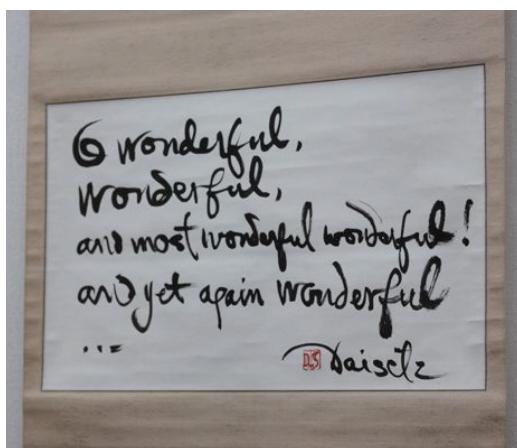 O wonderful,
wonderful,
and most wonderful wonderful!
and yet again wonderful
...
D.S Daisetz